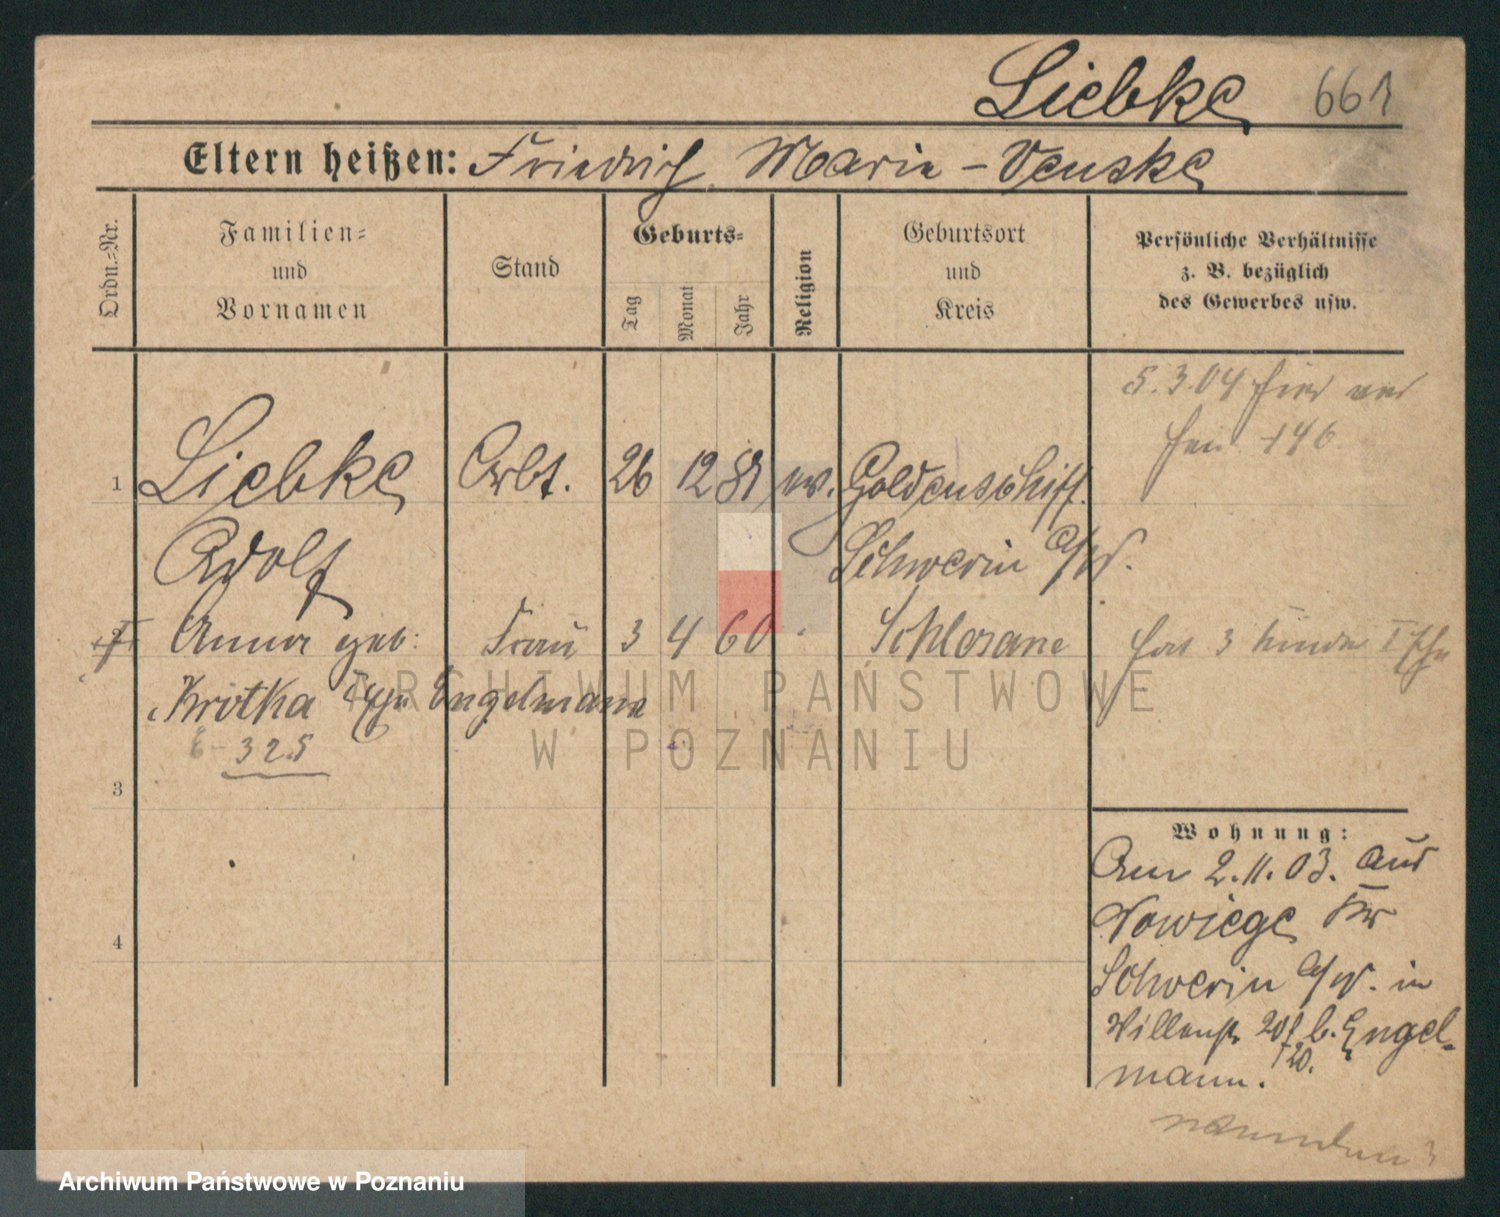 Liebke 661
Eltern heißen: Friedrich Marie - Venske
Ordn.-Nr.
Familien-
und
Vornamen
Stand
Geburts-
Tag
Monat
Jahr
Religion
Geburtsort
und
Kreis
Persönliche Verhältnisse
z. B. bezüglich
des Gewerbes usw.
5.3.04 hier
146
1 Liebke Arbt. 26 12 81 ev. Goldenschiff
Adolf Schwerin a/W.
Anna geb: Frau 3 4 60 Schlosane
Krotka Engelmann
325
hat 3 Kinder I Ehe
3
4
Wohnung:
Am 2.11.03. aus
Nowiege Kr
Schwerin a/W. in
Villenstr 20 b. Engel-
mann. 20.
ARCHIWUM PAŃSTWOWE
W POZNANIU
Archiwum Państwowe w Poznaniu